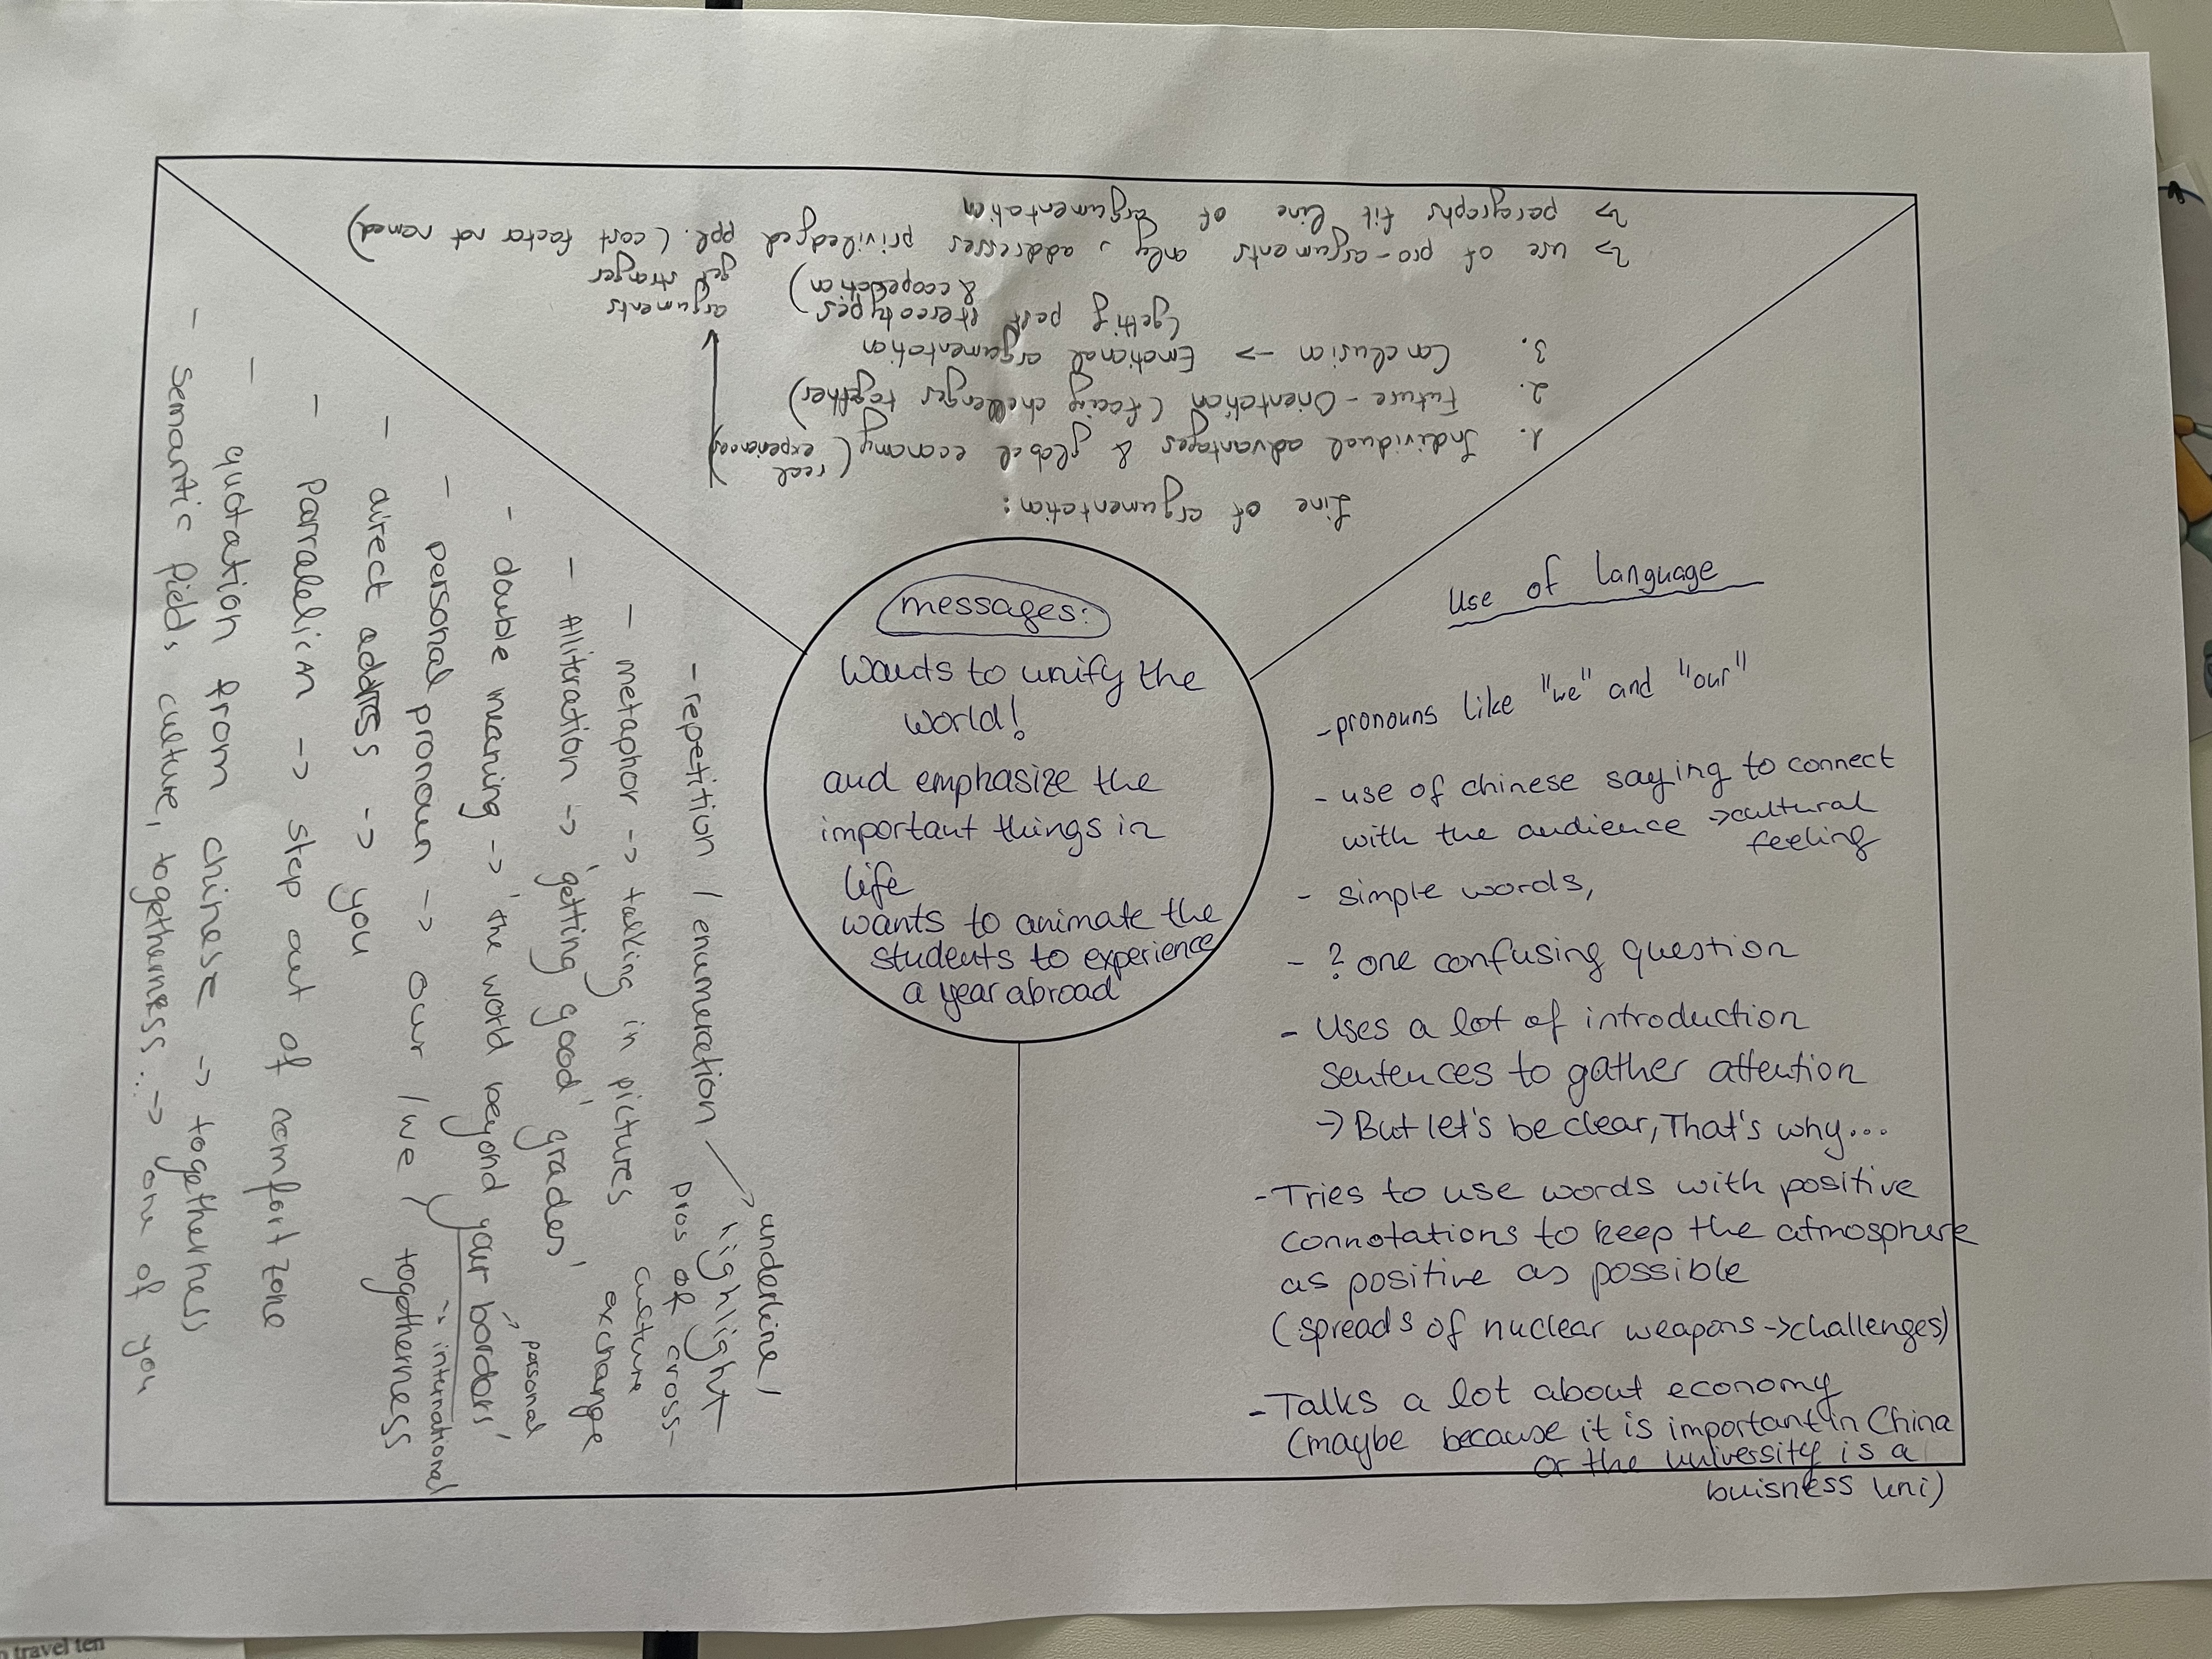 messages:
Wants to unify the
world!
and emphasize the
important things in
life
wants to animate the
students to experience
a year abroad
Line of argumentation:
1. Individual advantages & global economy (real
experiences)
2. Future-Orientation (facing challenges together)
3. Conclusion -> Emotional argumentation
(getting past stereotypes
& cooperation)
arguments
get stronger
=> use of pro-arguments only, addresses priviledged ppl. (cost factor not named)
=> paragraphs fit line of argumentation
Use of language
- pronouns like "we" and "our"
- use of chinese saying to connect
with the audience -> cultural
feeling
- simple words,
- ? one confusing question
- Uses a lot of introduction
sentences to gather attention
-> But let's be clear, That's why...
- Tries to use words with positive
connotations to keep the atmosphere
as positive as possible
(spreads of nuclear weapons -> challenges)
- Talks a lot about economy
(maybe because it is important in China
or the university is a
buisness uni)
- repetition / enumeration -> underline /
highlight
pros of cross-
culture
exchange
- metaphor -> talking in pictures
- Alliteration -> 'getting good' grades'
- double meaning -> 'the world beyond your borders'
-> personal
-> international
- personal pronoun -> our / we / togetherness
- direct address -> you
- Parralelism -> step out of comfort zone
- quotation from chinese -> togetherness
- semantic field, culture, togetherness... -> one of you
travel ten